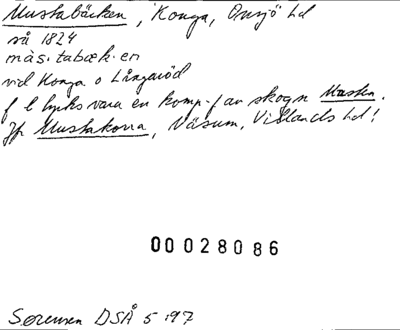 Mustabäcken, Konga, Onsjö hd
så 1824
mås·tabæk·en
vid Konga o Långaröd
f l tycks vara en komp. f av skogn Masten.
Jfr Mustakorra, Näsum, Villands hd!
00028086
Sørensen DSÅ 5:97